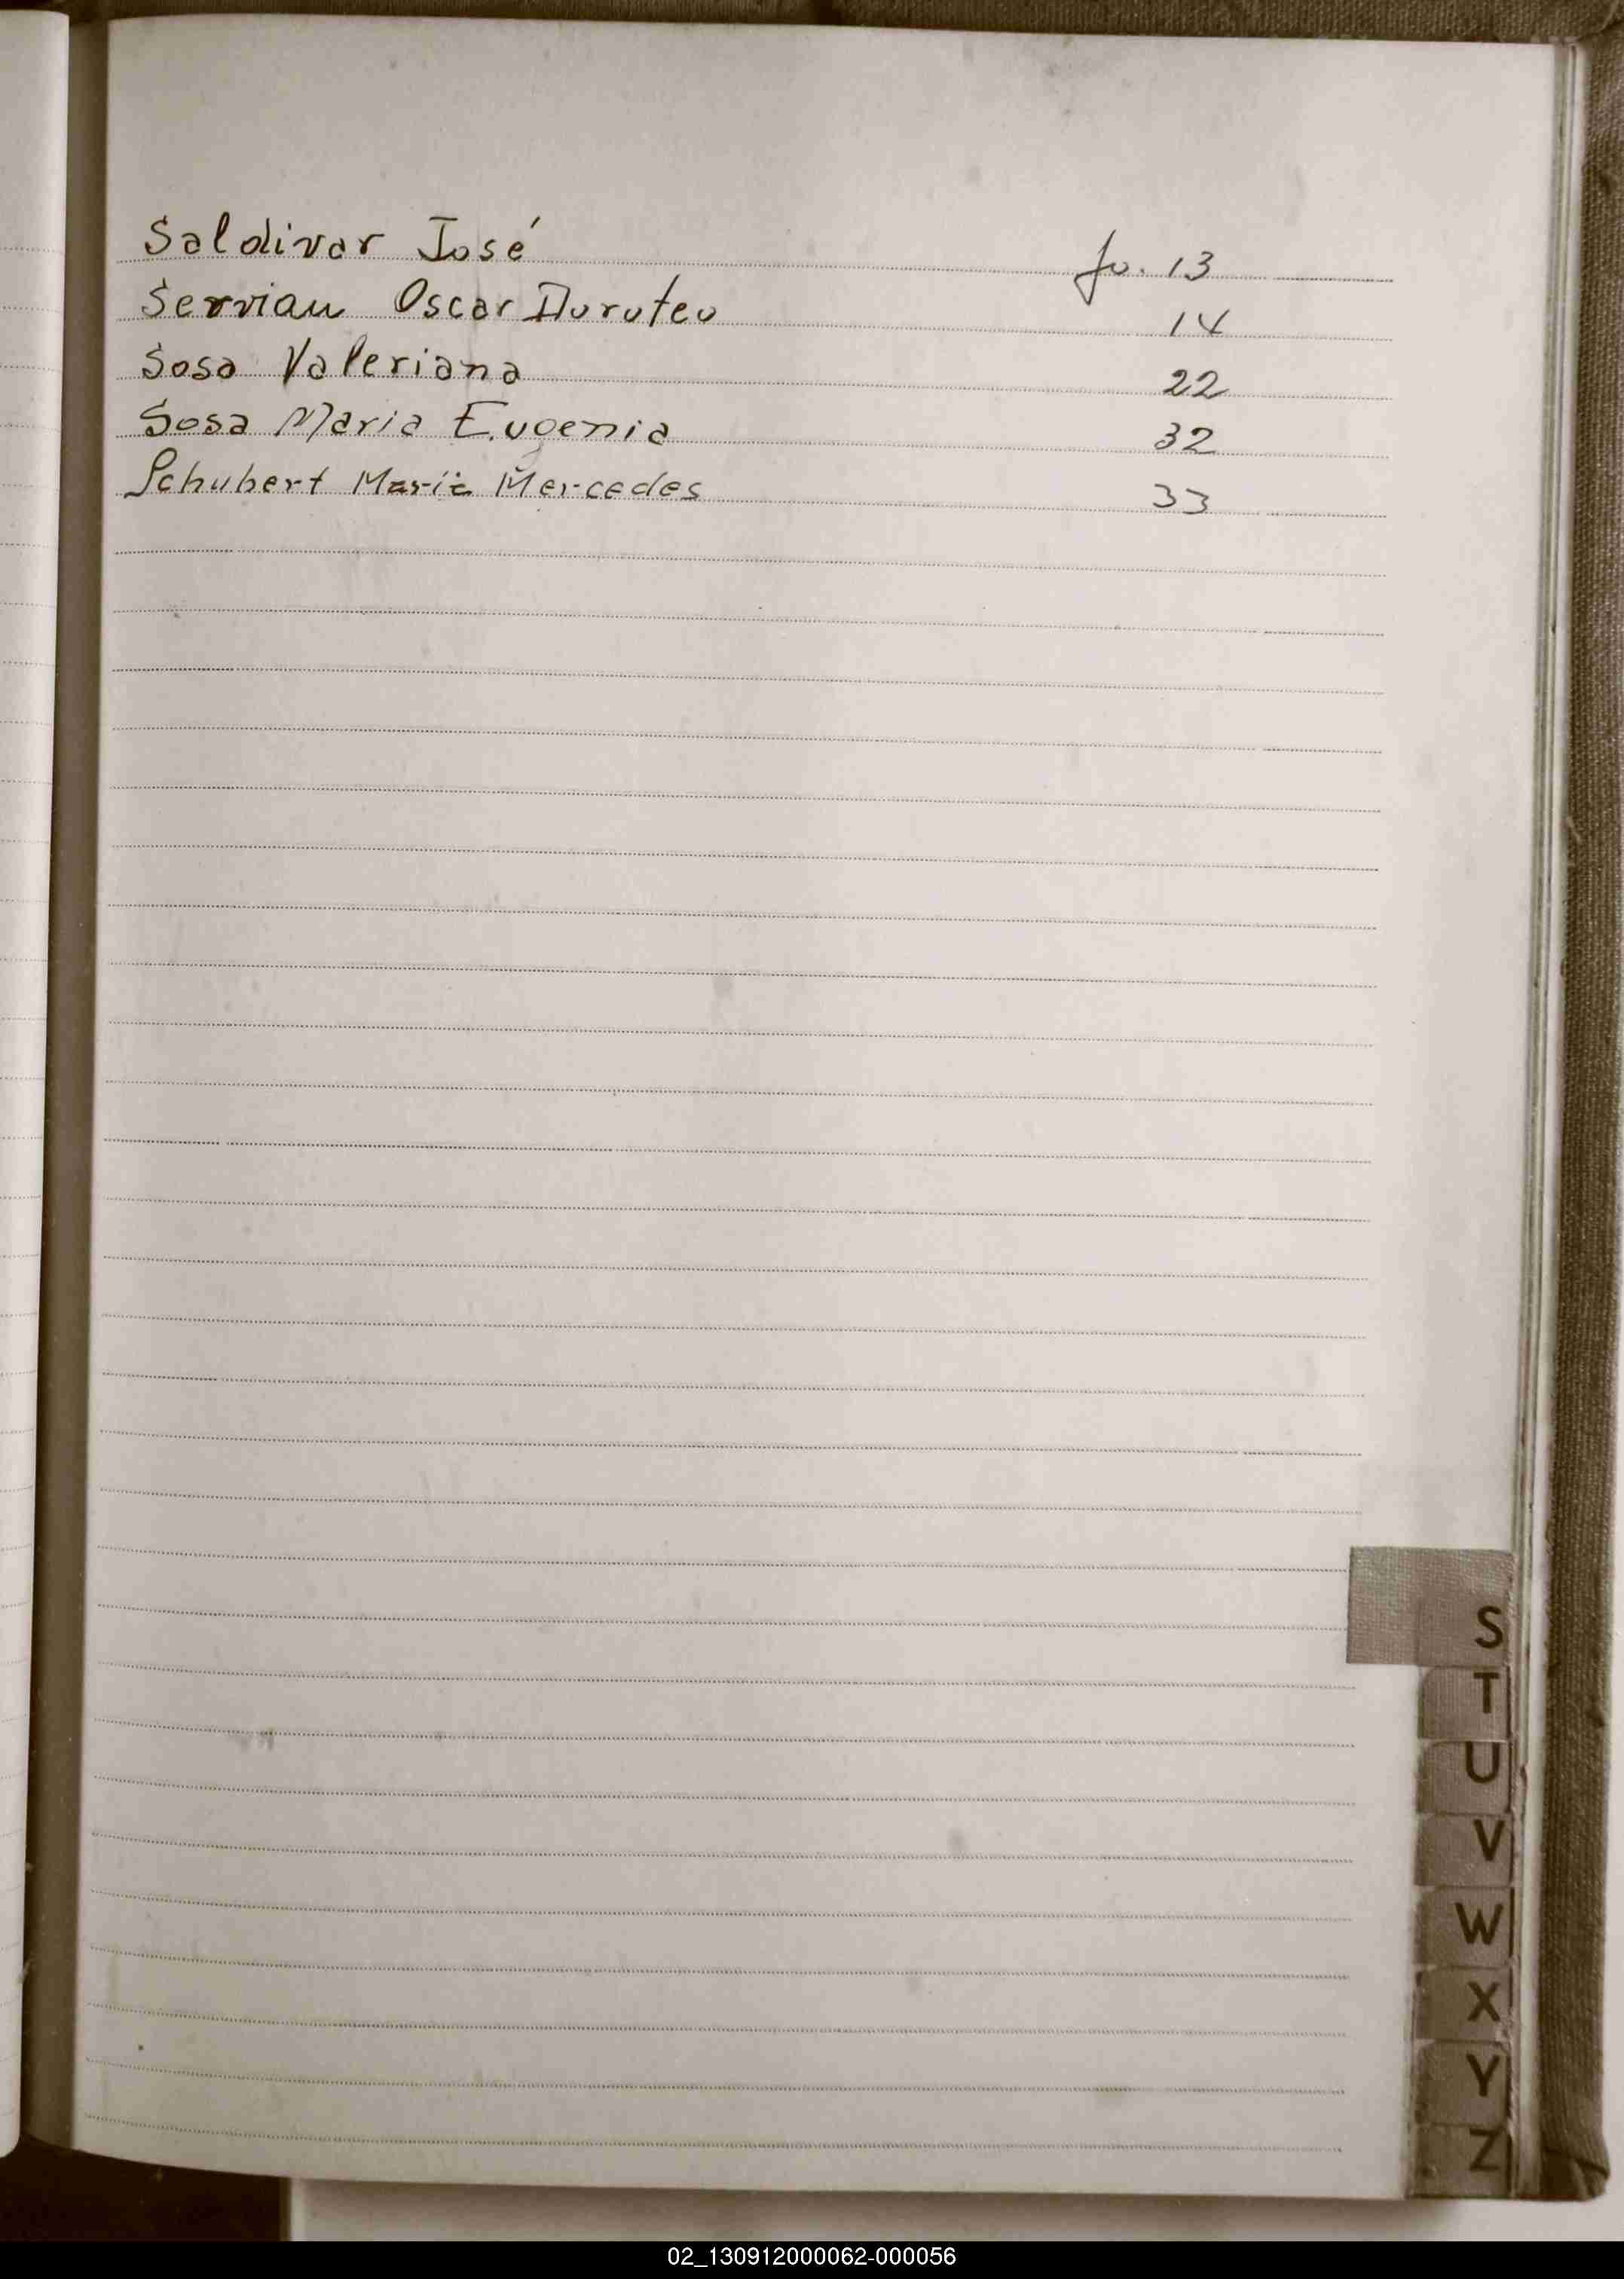 Saldivar José fo. 13
Servian Oscar Doroteo 14
Sosa Valeriana 22
Sosa Maria Eugenia 32
Schubert Maria Mercedes 33
S
T
U
V
W
X
Y
Z
02_130912000062-000056